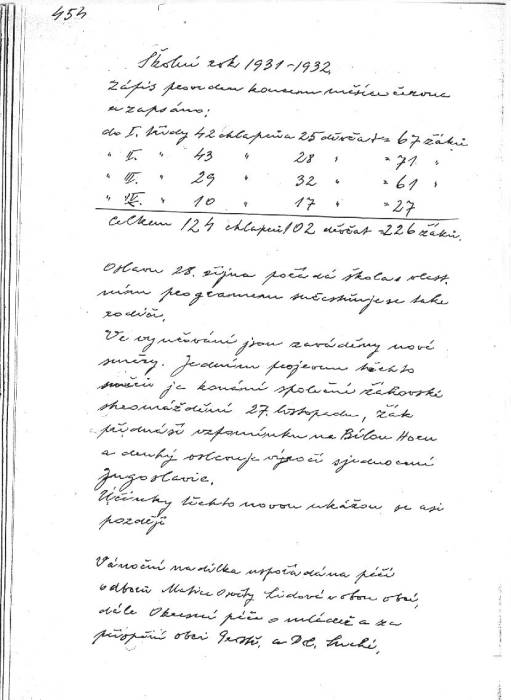 454
Školní rok 1931-1932.
Zápis proveden koncem měsíce června
a zapsáno:
do I. třídy 42 chlapců a 25 děvčat = 67 žáků
" II. " 43 " 28 " = 71 "
" III. " 29 " 32 " = 61 "
" IV. " 10 " 17 " = 27
Celkem 124 chlapců 102 děvčat = 226 žáků.
Oslavu 28. října pořádá škola s vlast-
ním programem súčastňuje se také
rodiče.
Ve vyučování jsou zaváděny nové
směry. Jedním projevem těchto
směrů je konání společné žákovské
shromáždění 27. listopadu, žák
přednáší vzpomínku na Bílou Horu
a druhý oslavuje výročí sjednocení
Jugoslavie.
Účinky těchto novou ukážou se asi
později
Vánoční nadílka uspořádána péčí
odborů Matice Osvěty Lidové v obou obcí,
dále Okresní péče o mládež a za
přispění obcí Prostř. a Dol. Suché.